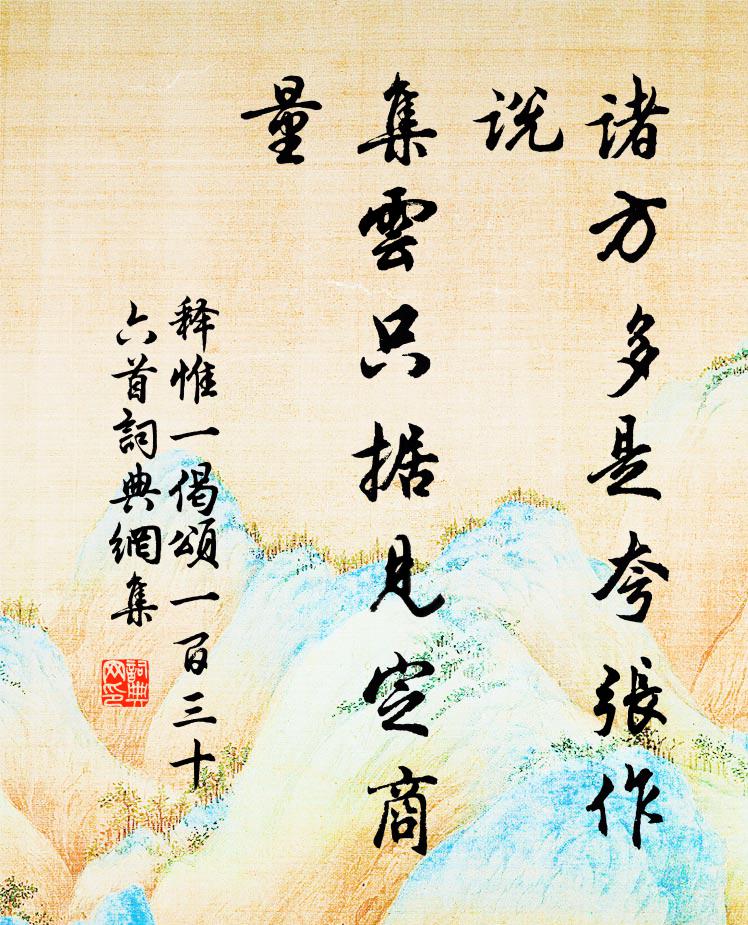 諸方多是夸張作
説
集雲只据見定商
量
释惟一偈頌一百三十
六首詞典網集
詞典
网印